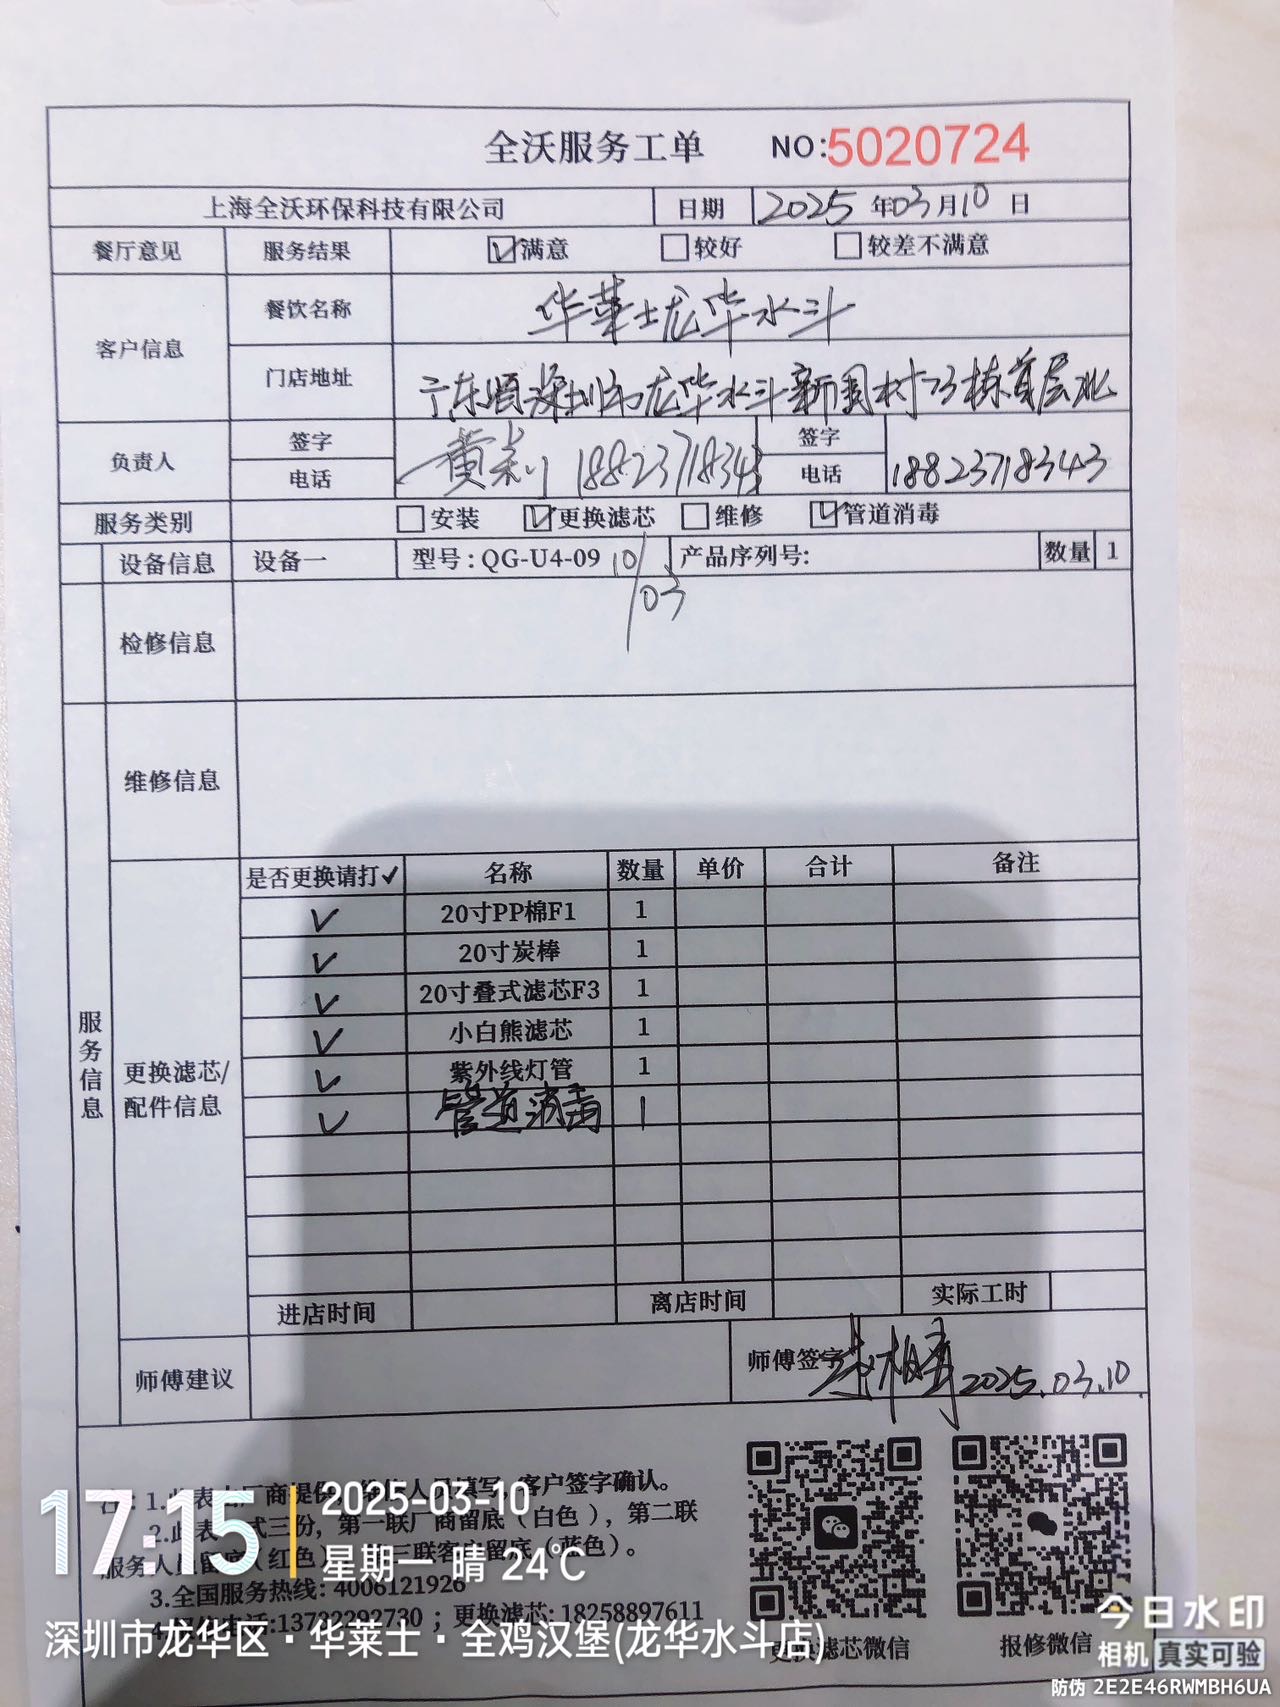 全沃服务工单 NO:5020724
上海全沃环保科技有限公司 日期 2025年03月10日
餐厅意见 服务结果 满意 较好 较差不满意
客户信息 餐饮名称 华莱士龙华水斗
门店地址 广东省深圳市龙华水斗新围村73栋首层北
负责人 签字 黄 签字
电话 18823718343 电话 18823718343
服务类别 安装 更换滤芯 维修 管道消毒
设备信息 设备一 型号:QG-U4-09 产品序列号: 数量 1
10/03
检修信息
维修信息
服务信息
更换滤芯/配件信息
是否更换请打✓ 名称 数量 单价 合计 备注
✓ 20寸PP棉F1 1
✓ 20寸炭棒 1
✓ 20寸叠式滤芯F3 1
✓ 小白熊滤芯 1
✓ 紫外线灯管 1
✓ 管道消毒 1
进店时间 离店时间 实际工时
师傅建议 师傅签字 2025.03.10
1.此表 厂商提供, 人员填写,客户签字确认。
2.此表 式三份,第一联厂商留底(白色),第二联
服务人员留底(红色) 三联客户留底(蓝色)。
3.全国服务热线:4006121926
电话:13732292730;更换滤芯:18258897611
更换滤芯微信 报修微信
17:15 2025-03-10
星期一 晴 24℃
深圳市龙华区·华莱士·全鸡汉堡(龙华水斗店)
今日水印
相机 真实可验
防伪 2E2E46RWMBH6UA